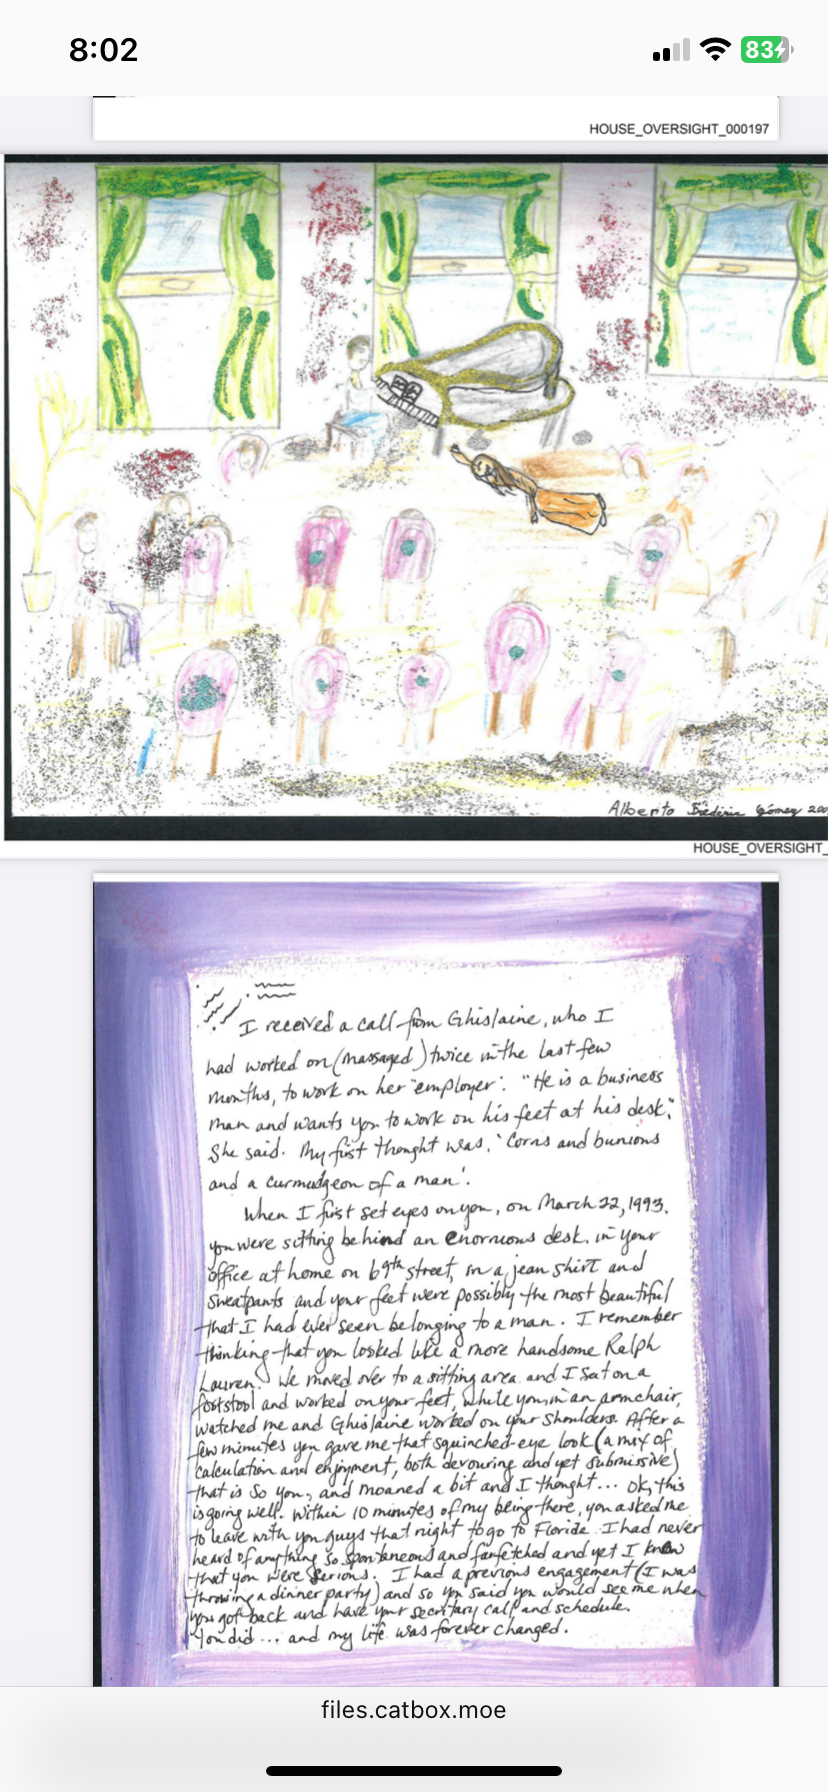 8:02
83
HOUSE_OVERSIGHT_000197
Alberto Gómez 200
HOUSE_OVERSIGHT_
I received a call from Ghislaine, who I
had worked on (massaged) twice in the last few
months, to work on her "employer". "He is a business
man and wants you to work on his feet at his desk",
She said. My first thought was, 'Corns and bunions
and a curmudgeon of a man'.
When I first set eyes on you, on March 22, 1993,
you were sitting behind an enormous desk, in your
office at home on 69th street, in a jean shirt and
sweatpants and your feet were possibly the most beautiful
that I had ever seen belonging to a man. I remember
thinking that you looked like a more handsome Ralph
Lauren. We moved over to a sitting area and I sat on a
footstool and worked on your feet, while you, in an armchair,
watched me and Ghislaine worked on your shoulders. After a
few minutes you gave me that squinched-eye look (a mix of
calculation and enjoyment, both devouring and yet submissive)
that is so you, and moaned a bit and I thought... Ok, this
is going well. Within 10 minutes of my being there, you asked me
to leave with you guys that night to go to Florida. I had never
heard of anything so spontaneous and farfetched and yet I knew
that you were serious. I had a previous engagement (I was
throwing a dinner party) and so you said you would see me when
you got back and have your secretary call and schedule.
You did... and my life was forever changed.
files.catbox.moe